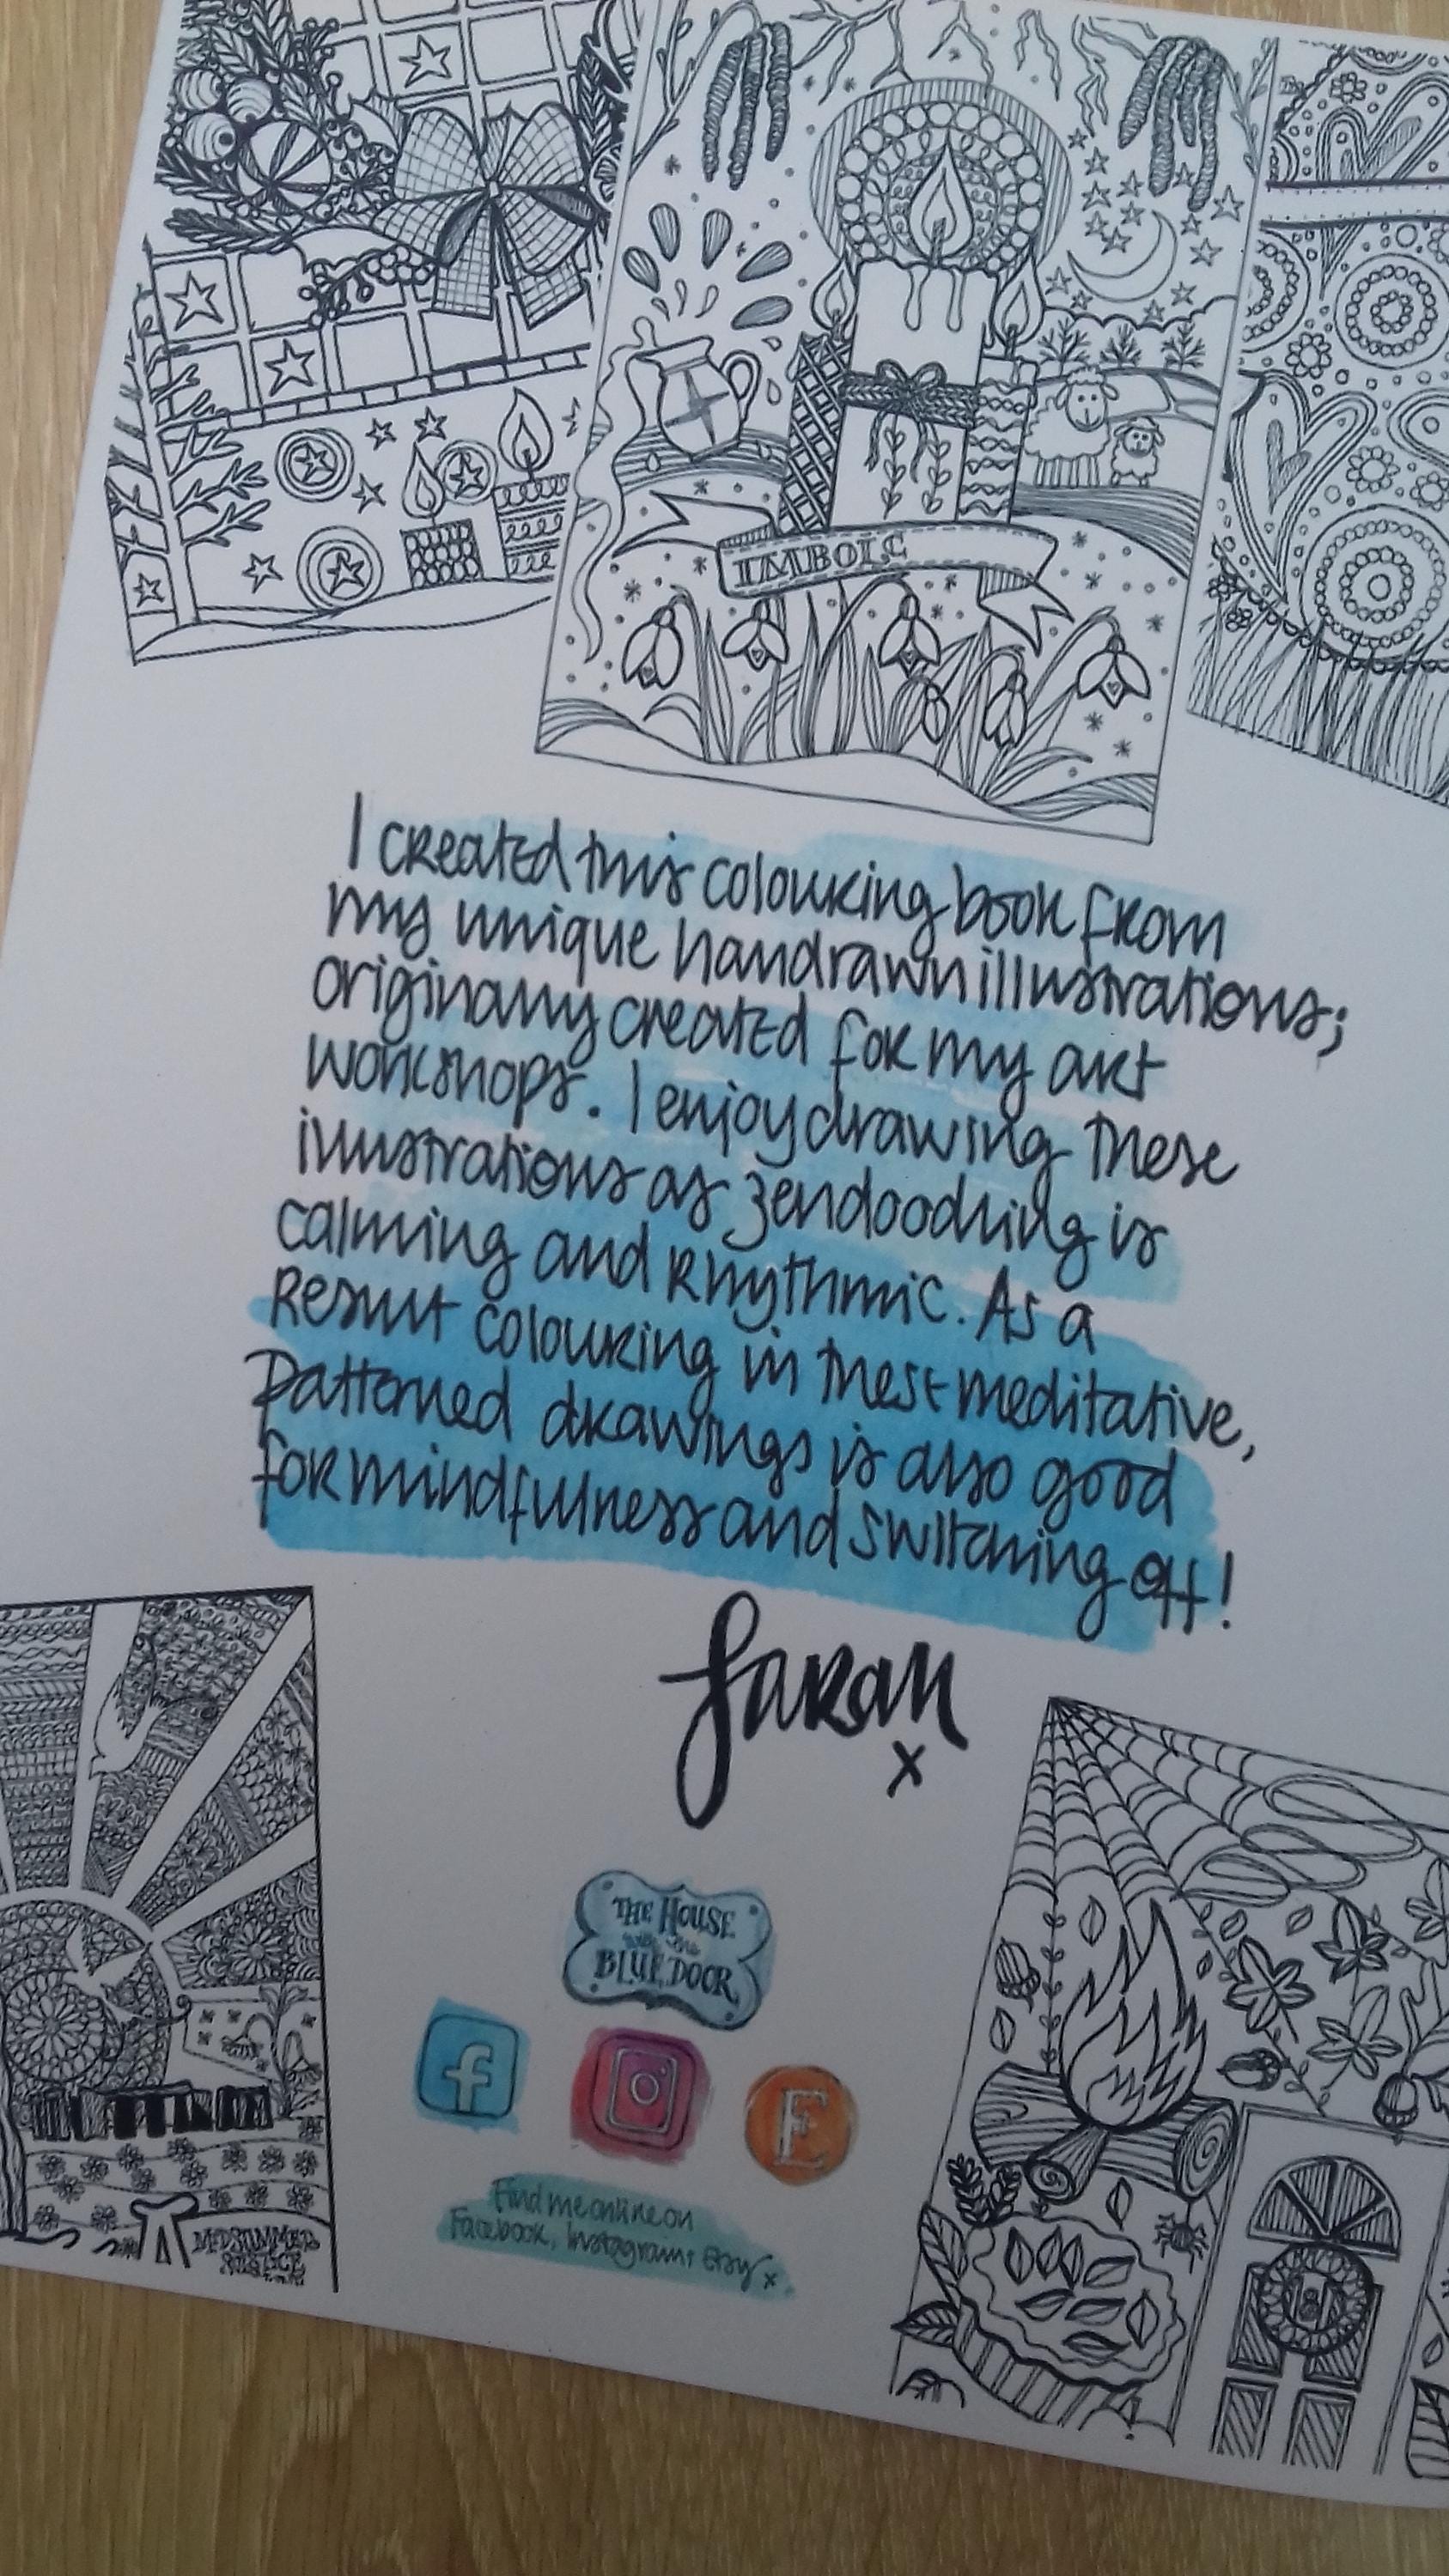 IMBOLC
I created this colouring book from
my unique handrawn illustrations;
originally created for my art
workshops. I enjoy drawing these
illustrations as zendoodling is
calming and Rhythmic. As a
Result colouring in these meditative,
patterned drawings is also good
for mindfulness and switching off!
Sarah
x
THE HOUSE
with the
BLUE DOOR
f
E
Find me online on
Facebook, Instagram & Etsy x
MIDSUMMER
SOLSTICE
18